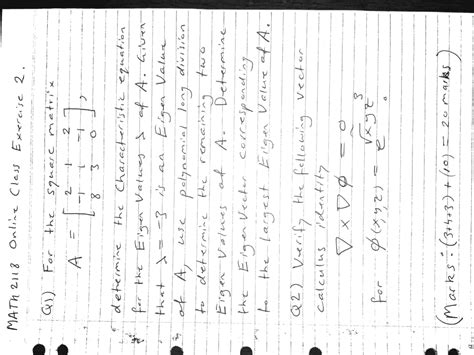 MATH 2118 Online Class Exercise 2.
Q1) For the square matrix
A = [ 2 1 2
-1 1 -1
8 3 0 ],
determine the Characteristic equation
for the Eigen Values λ of A. Given
that λ = -3 is an Eigen Value
of A, use polynomial long division
to determine the remaining two
Eigen Values of A. Determine
the Eigen Vector corresponding
to the largest Eigen Value of A.
Q2) Verify the following vector
calculus identity
∇ × ∇ϕ = 0
for ϕ(x,y,z) = e^√xyz³.
(Marks: (3+4+3) + (10) = 20 marks)